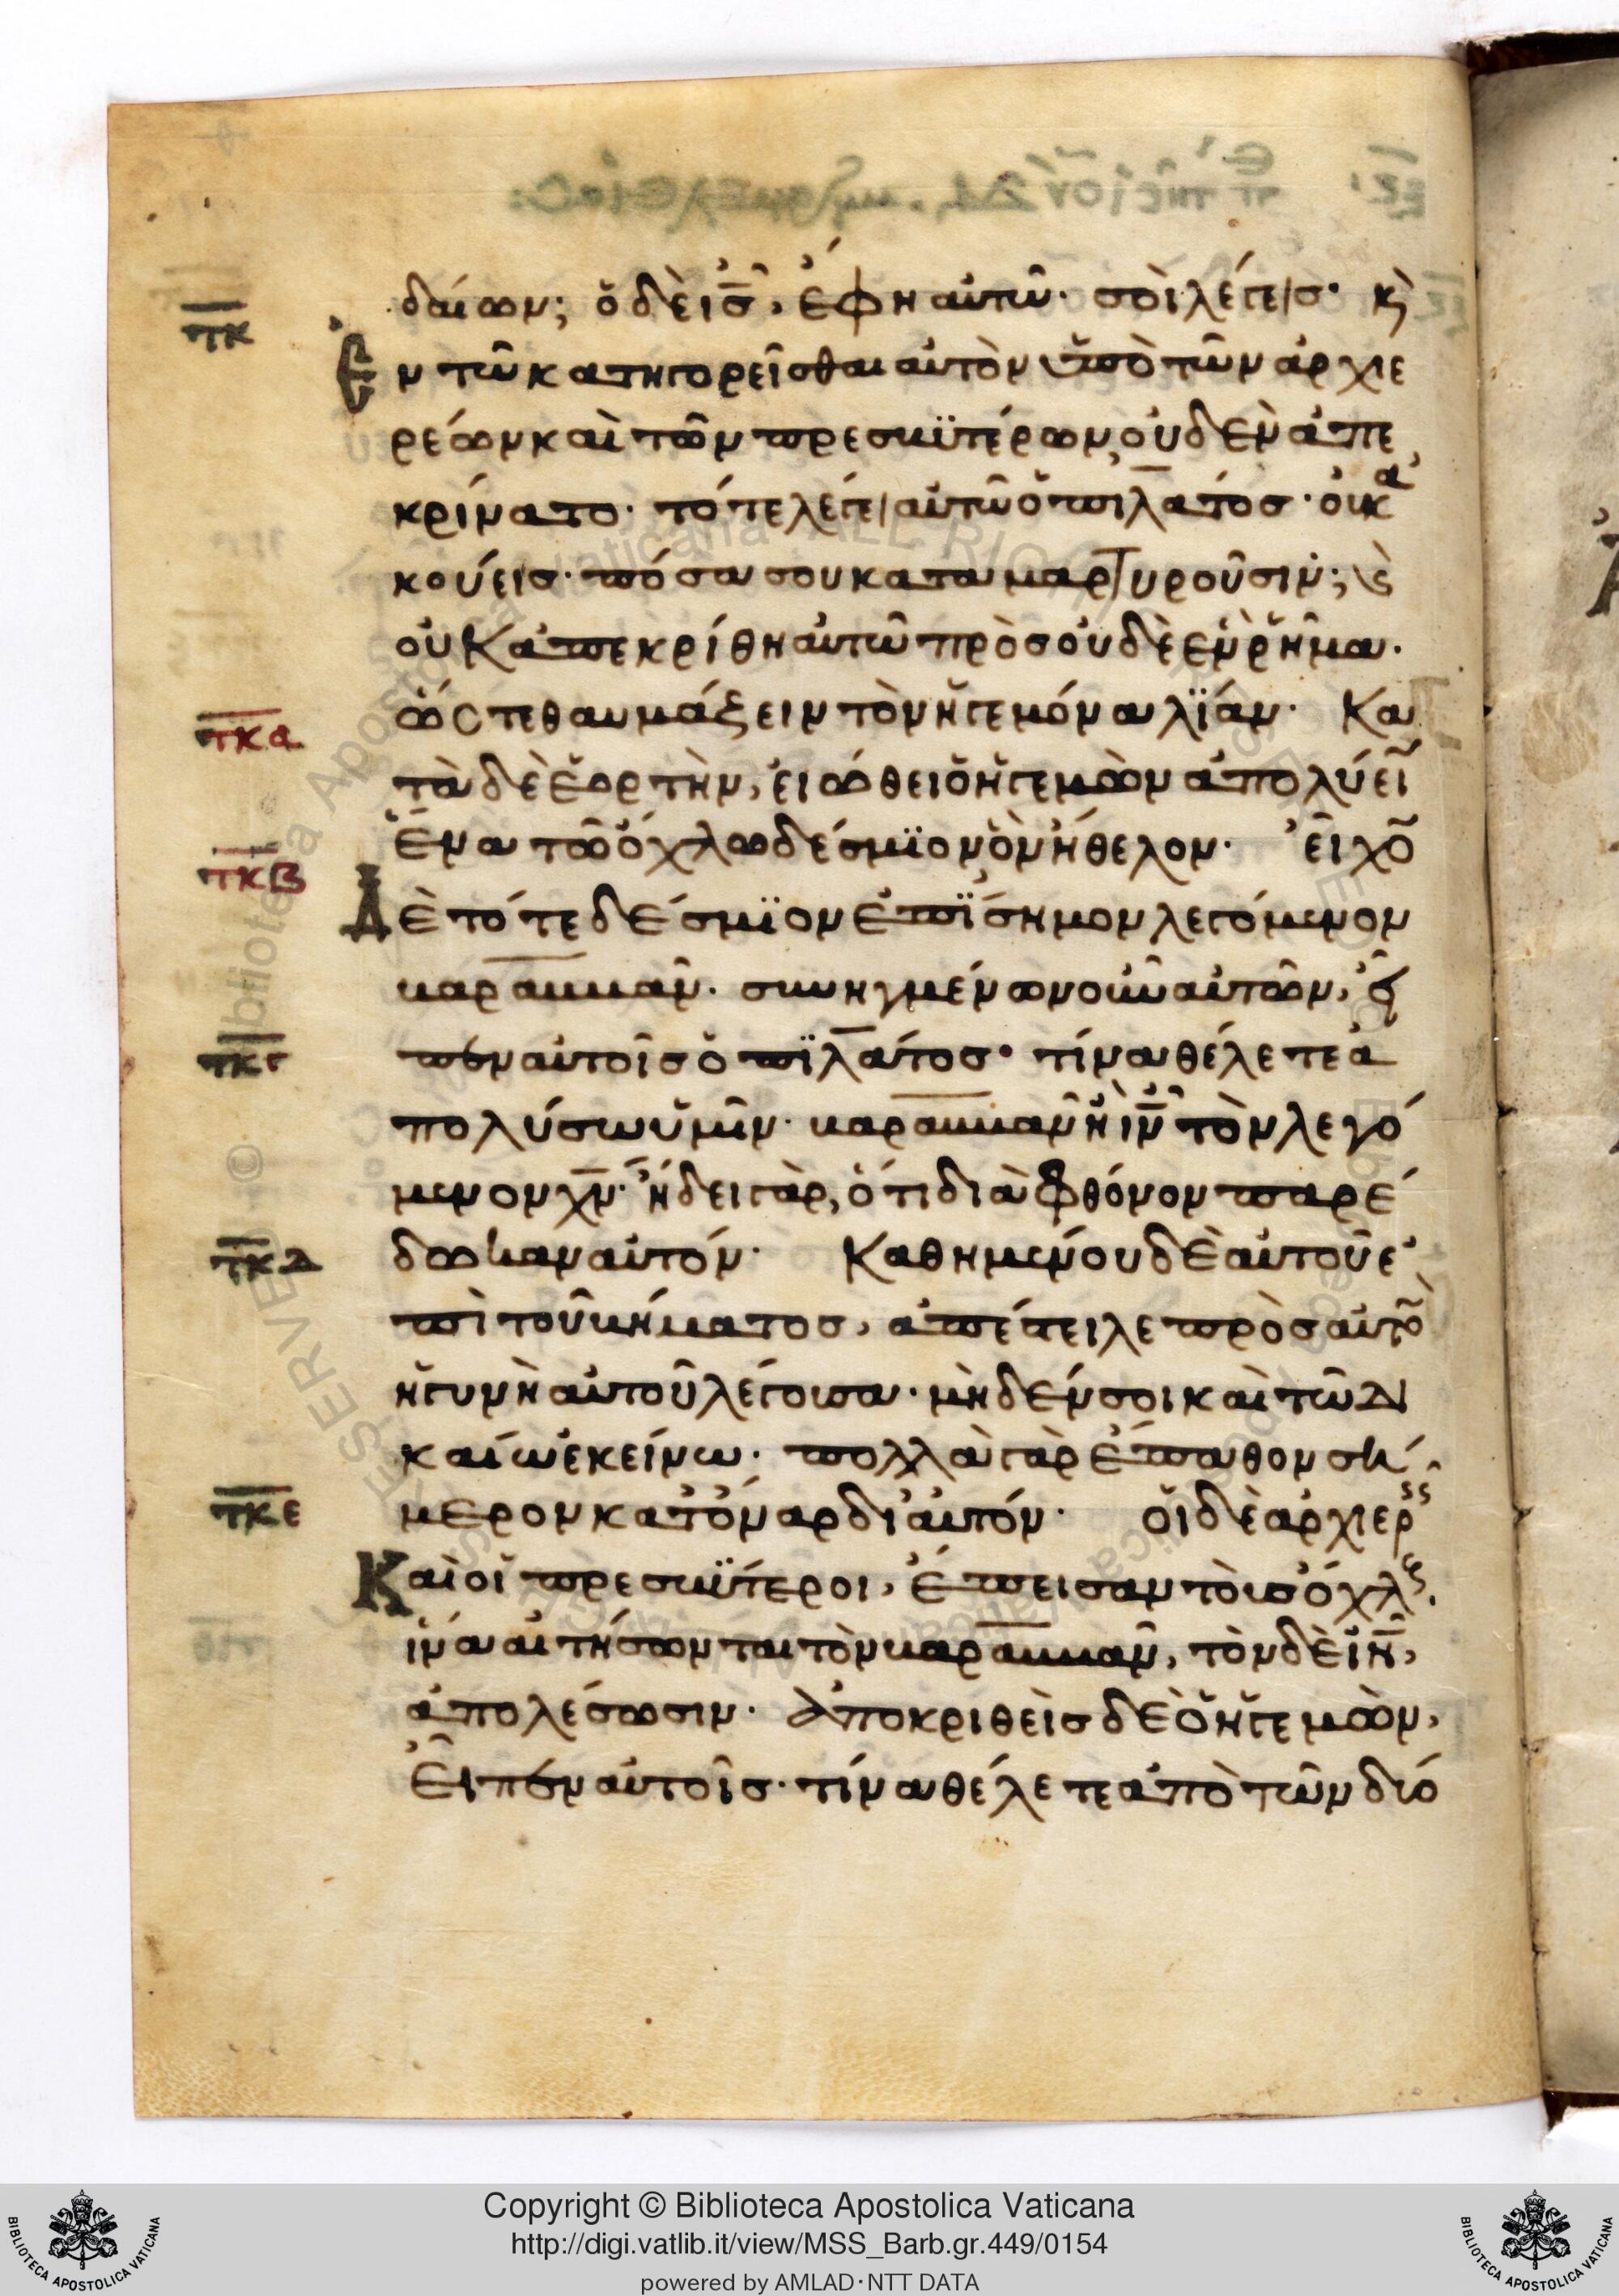 δαίων; ὁ δὲ ις̅, ἔφη αὐτῶ· σὺ λέγεις· κ̀
τκ
Ἐν τῶ κατηγορεῖσθαι αὐτὸν ὑπὸ τῶν ἀρχιε
ρέων καὶ τῶν πρεσβϋτέρων, οὐδὲν ἀπε
κρίνατο· τότε λέγει αὐτῶ ὁ πιλάτος· οὐκ ἀ
κούεις· πόσα σου καταμαρτυροῦσιν; ϗ
οὐκ ἀπεκρίθη αὐτῶ πρὸς οὐδὲ ἐν ῥῆμα·
ὥστε θαυμάζειν τὸν ἡγεμόνα λΐαν· Κα
τκα
τὰ δὲ ἑορτὴν, εἰώθει ὁ ἡγεμὼν ἀπολύει̅
ἕνα τῶ ὄχλω δέσμϊον ὃν ἤθελον· εἶχο̅
τκβ
Δὲ τότε δέσμϊον ἐπΐσημον λεγόμενον
βαραββᾶν· συνηγμένων οὖν αὐτῶν, εἶ
πεν αὐτοῖς ὁ πϊλάτος· τίνα θέλετε ἀ
τκγ
πολύσω ὑμῖν· βαραββᾶν ἢ ιν̅ τὸν λεγό
μενον χν̅· ἤδει γὰρ, ὅτι διὰ φθόνον παρέ
δωκαν αὐτόν· Καθημένου δὲ αὐτοῦ ἐ
τκδ
πὶ τοῦ βήματος, ἀπέστειλε πρὸς αὐτο̅
ἡ γυνὴ αὐτοῦ λέγουσα· μηδέν σοι καὶ τῶ δι
καίω ἐκείνω· πολλὰ γὰρ ἔπαθον σή
μερον κατ' ὄναρ δι' αὐτόν· οἱ δὲ ἀρχιερς
τκε
Καὶ οἱ πρεσβϋτεροι, ἔπεισαν τοὺς ὄχλς.
ἵνα αἰτήσωνται τὸν βαραββᾶν, τὸν δὲ ιν̅,
ἀπολέσωσιν· Ἀποκριθεὶς δὲ ὁ ἡγεμὼν,
εἶπεν αὐτοῖς· τίνα θέλετε ἀπὸ τῶν δύο
Copyright © Biblioteca Apostolica Vaticana
http://digi.vatlib.it/view/MSS_Barb.gr.449/0154
powered by AMLAD·NTT DATA
BIBLIOTECA APOSTOLICA VATICANA
BIBLIOTECA APOSTOLICA VATICANA